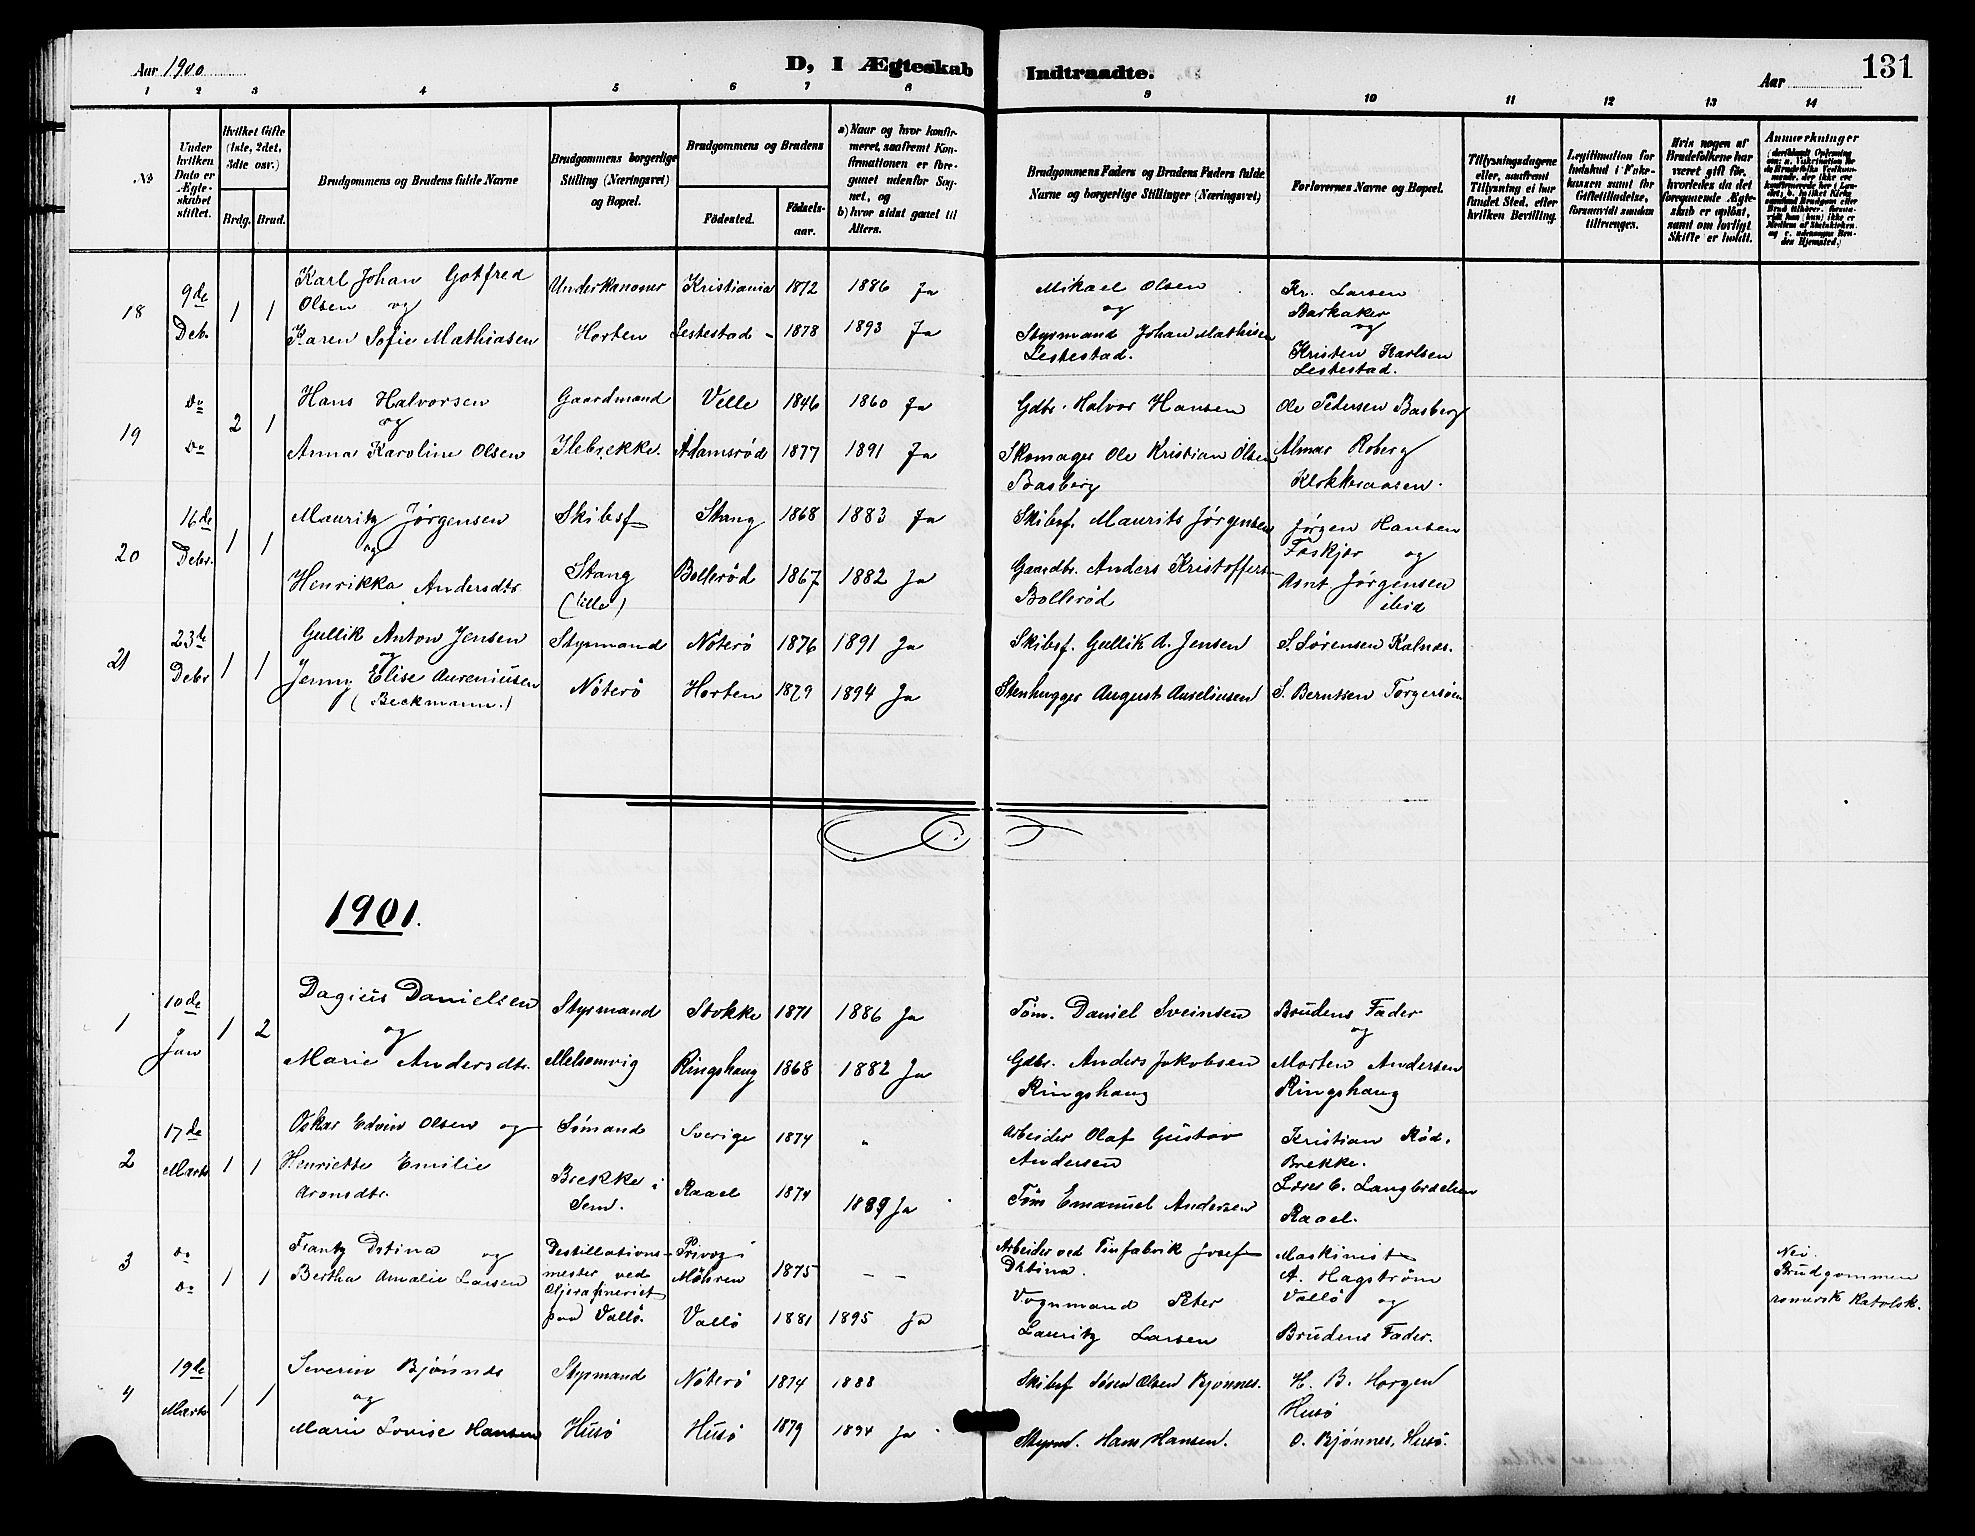 Aar 1900
D, I Ægteskab
Indtraadte.
Aar
131
1 2 3 4 5 6 7 8 9 10 11 12 13 14
No
Under hvilken Dato er Ægteskabet stiftet.
Hvilket Gifte (1ste, 2det, 3die osv.)
Brdg. Brud.
Brudgommens og Brudens fulde Navne
Brudgommens borgerlige Stilling (Næringsvei) og Bopæl.
Brudgommens og Brudens
Födested.
Födselsaar.
a) Naar og hvor konfirmeret, saafremt Konfirmationen er foregaaet udenfor Sognet, og
b) hvor sidst gaaet til Alters.
Brudgommens Faders og Brudens Faders fulde Navne og borgerlige Stillinger (Næringsvei)
Forlovernes Navne og Bopæl.
Tillysningsdagene eller, saafremt Tillysning ei har fundet Sted, efter hvilken Bevilling.
Legitimation for Indskud i Enkekassen samt for Giftetilladelse, forsaavidt saadan tiltrænges.
Hvis nogen af Brudefolkene har været gift för, hvorledes da det foregaaende Ægteskab er oplöst, samt om lovligt Skifte er holdt.
Anmærkninger
18
9de Debr.
1 1
Karl Johan Gotfred
Olsen og
Karen Sofie Mathiasen
Underkanoner
Horten
Kristiania 1872 1886 Ja
Lestestad 1878 1893 Ja
Mikael Olsen
og
Styrmand Johan Mathisen
Lestestad.
Kr. Larsen
Barkaker
og
Kristen Karlsen
Lestestad.
19
Do
Do
2 1
Hans Halvorsen
og
Anna Karoline Olsen
Gaardmand
Ilebrekke.
Velle 1846 1860 Ja
Adamsrød 1877 1891 Ja
Gdbr. Halvor Hansen
Skomager Ole Kristian Olsen
Basberg
Ole Pedersen Basberg
Almar Roberg
Klokkeraasen.
20
16de Debr.
1 1
Mauritz Jørgensen
og
Henrikka Andersdtr
Skibsf
Stang
(lille)
Stang 1868 1883 Ja
Bollerød 1867 1882 Ja
Skibsf. Maurits Jørgensen
Gaardbr. Anders Kristoffersen
Bollerød
Jørgen Hansen
Foskjør og
Asnt Jørgensen
ibid
21
23de Debr
1 1
Gullik Anton Jensen
og
Jenny Elise Aureniusen
(Beckmann.)
Styrmand
Nøterø
Nøterø 1876 1891 Ja
Horten 1879 1894 Ja
Skibsf. Gullik A. Jensen
Stenhugger August Aureliusen
S. Sørensen Kalnes.
S. Berntsen Torgersøen
1901.
1
10de Jan
1 2
Dagius Danielsen
og
Marie Andersdtr.
Styrmand
Melsomvig
Stokke 1871 1886 Ja
Ringshaug 1868 1882 Ja
Tøm. Daniel Sveinsen
Gdbr. Anders Jakobsen
Ringshaug
Brudens Fader
og
Morten Andersen
Ringshaug
2
17de Marts
1 1
Oskar Edvin Olsen og
Henriette Emilie
Aronsdtr.
Sømand
Brekke i
Sem.
Sverige 1874 "
Raael 1874 1889 Ja
Arbeider Olaf Gustav
Andersen
Tøm Emanuel Andersen
Kristian Rød.
Brekke.
Raael.
3
Do
Do
1 1
Frantz Drtina og
Bertha Amalie Larsen
Destillationsmester ved
Oljeraffineriet
paa Vallø.
Privoz i
Möhren 1875 — —
Vallø 1881 1895 Ja
Arbeider ved Tinfabrik Josef
Drtina.
Vognmand Peter
Lauritz Larsen
Maskinist
A. Hagstrøm
Vallø og
Brudens Fader.
Nei.
Brudgommen
romersk Katolsk.
4
19de Marts
1 1
Severin Bjønnes
og
Marie Lovise Hansen
Styrmand
Husø
Nøterø 1874 1888
Husø 1879 1894 Ja
Skibsf Søren Olsen Bjønnes.
Styrm. Hans Hansen.
H. B. Horgen
Husø
O. Bjønnes, Husø.